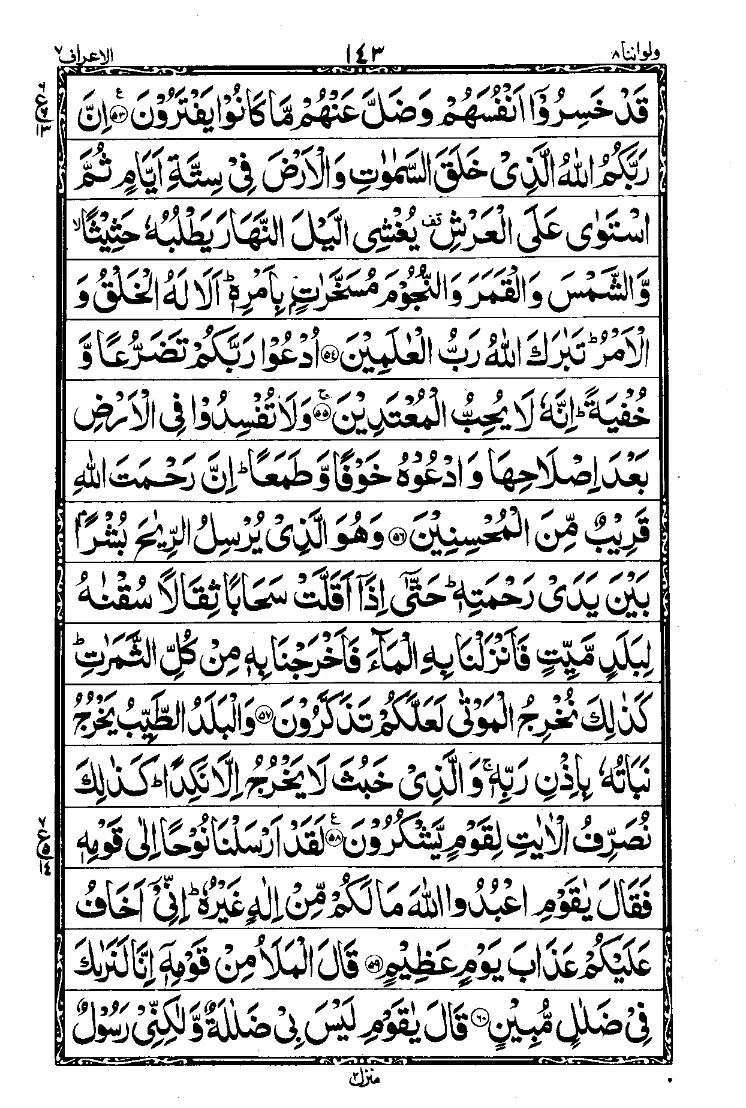 ولواننا ٨ ١٤٣ الاعراف ٧
قَدْ خَسِرُوْۤا اَنْفُسَهُمْ وَضَلَّ عَنْهُمْ مَّا كَانُوْا يَفْتَرُوْنَ ﴿٥٣﴾ۧ اِنَّ
رَبَّكُمُ اللّٰهُ الَّذِیْ خَلَقَ السَّمٰوٰتِ وَالْاَرْضَ فِیْ سِتَّةِ اَیَّامٍ ثُمَّ
اسْتَوٰی عَلَی الْعَرْشِ قف یُغْشِی الَّیْلَ النَّهَارَ یَطْلُبُهٗ حَثِیْثًا لا
وَّالشَّمْسَ وَالْقَمَرَ وَالنُّجُوْمَ مُسَخَّرٰتٍۭ بِاَمْرِهٖ ؕ اَلَا لَهُ الْخَلْقُ وَ
الْاَمْرُ ؕ تَبٰرَكَ اللّٰهُ رَبُّ الْعٰلَمِیْنَ ﴿٥٤﴾ اُدْعُوْا رَبَّكُمْ تَضَرُّعًا وَّ
خُفْیَةً ؕ اِنَّهٗ لَا یُحِبُّ الْمُعْتَدِیْنَ ﴿٥٥﴾ۚ وَلَا تُفْسِدُوْا فِی الْاَرْضِ
بَعْدَ اِصْلَاحِهَا وَادْعُوْهُ خَوْفًا وَّطَمَعًا ؕ اِنَّ رَحْمَتَ اللّٰهِ
قَرِیْبٌ مِّنَ الْمُحْسِنِیْنَ ﴿٥٦﴾ وَهُوَ الَّذِیْ یُرْسِلُ الرِّیٰحَ بُشْرًۢا
بَیْنَ یَدَیْ رَحْمَتِهٖ ؕ حَتّٰۤی اِذَاۤ اَقَلَّتْ سَحَابًا ثِقَالًا سُقْنٰهُ
لِبَلَدٍ مَّیِّتٍ فَاَنْزَلْنَا بِهِ الْمَآءَ فَاَخْرَجْنَا بِهٖ مِنْ كُلِّ الثَّمَرٰتِ ؕ
كَذٰلِكَ نُخْرِجُ الْمَوْتٰی لَعَلَّكُمْ تَذَكَّرُوْنَ ﴿٥٧﴾ وَالْبَلَدُ الطَّیِّبُ یَخْرُجُ
نَبَاتُهٗ بِاِذْنِ رَبِّهٖ ۚ وَالَّذِیْ خَبُثَ لَا یَخْرُجُ اِلَّا نَكِدًا ؕ كَذٰلِكَ
نُصَرِّفُ الْاٰیٰتِ لِقَوْمٍ یَّشْكُرُوْنَ ﴿٥٨﴾ۧ لَقَدْ اَرْسَلْنَا نُوْحًا اِلٰی قَوْمِهٖ
فَقَالَ یٰقَوْمِ اعْبُدُوا اللّٰهَ مَا لَكُمْ مِّنْ اِلٰهٍ غَیْرُهٗ ؕ اِنِّیْۤ اَخَافُ
عَلَیْكُمْ عَذَابَ یَوْمٍ عَظِیْمٍ ﴿٥٩﴾ قَالَ الْمَلَاُ مِنْ قَوْمِهٖۤ اِنَّا لَنَرٰىكَ
فِیْ ضَلٰلٍ مُّبِیْنٍ ﴿٦٠﴾ قَالَ یٰقَوْمِ لَیْسَ بِیْ ضَلٰلَةٌ وَّلٰكِنِّیْ رَسُوْلٌ
منزل ٢